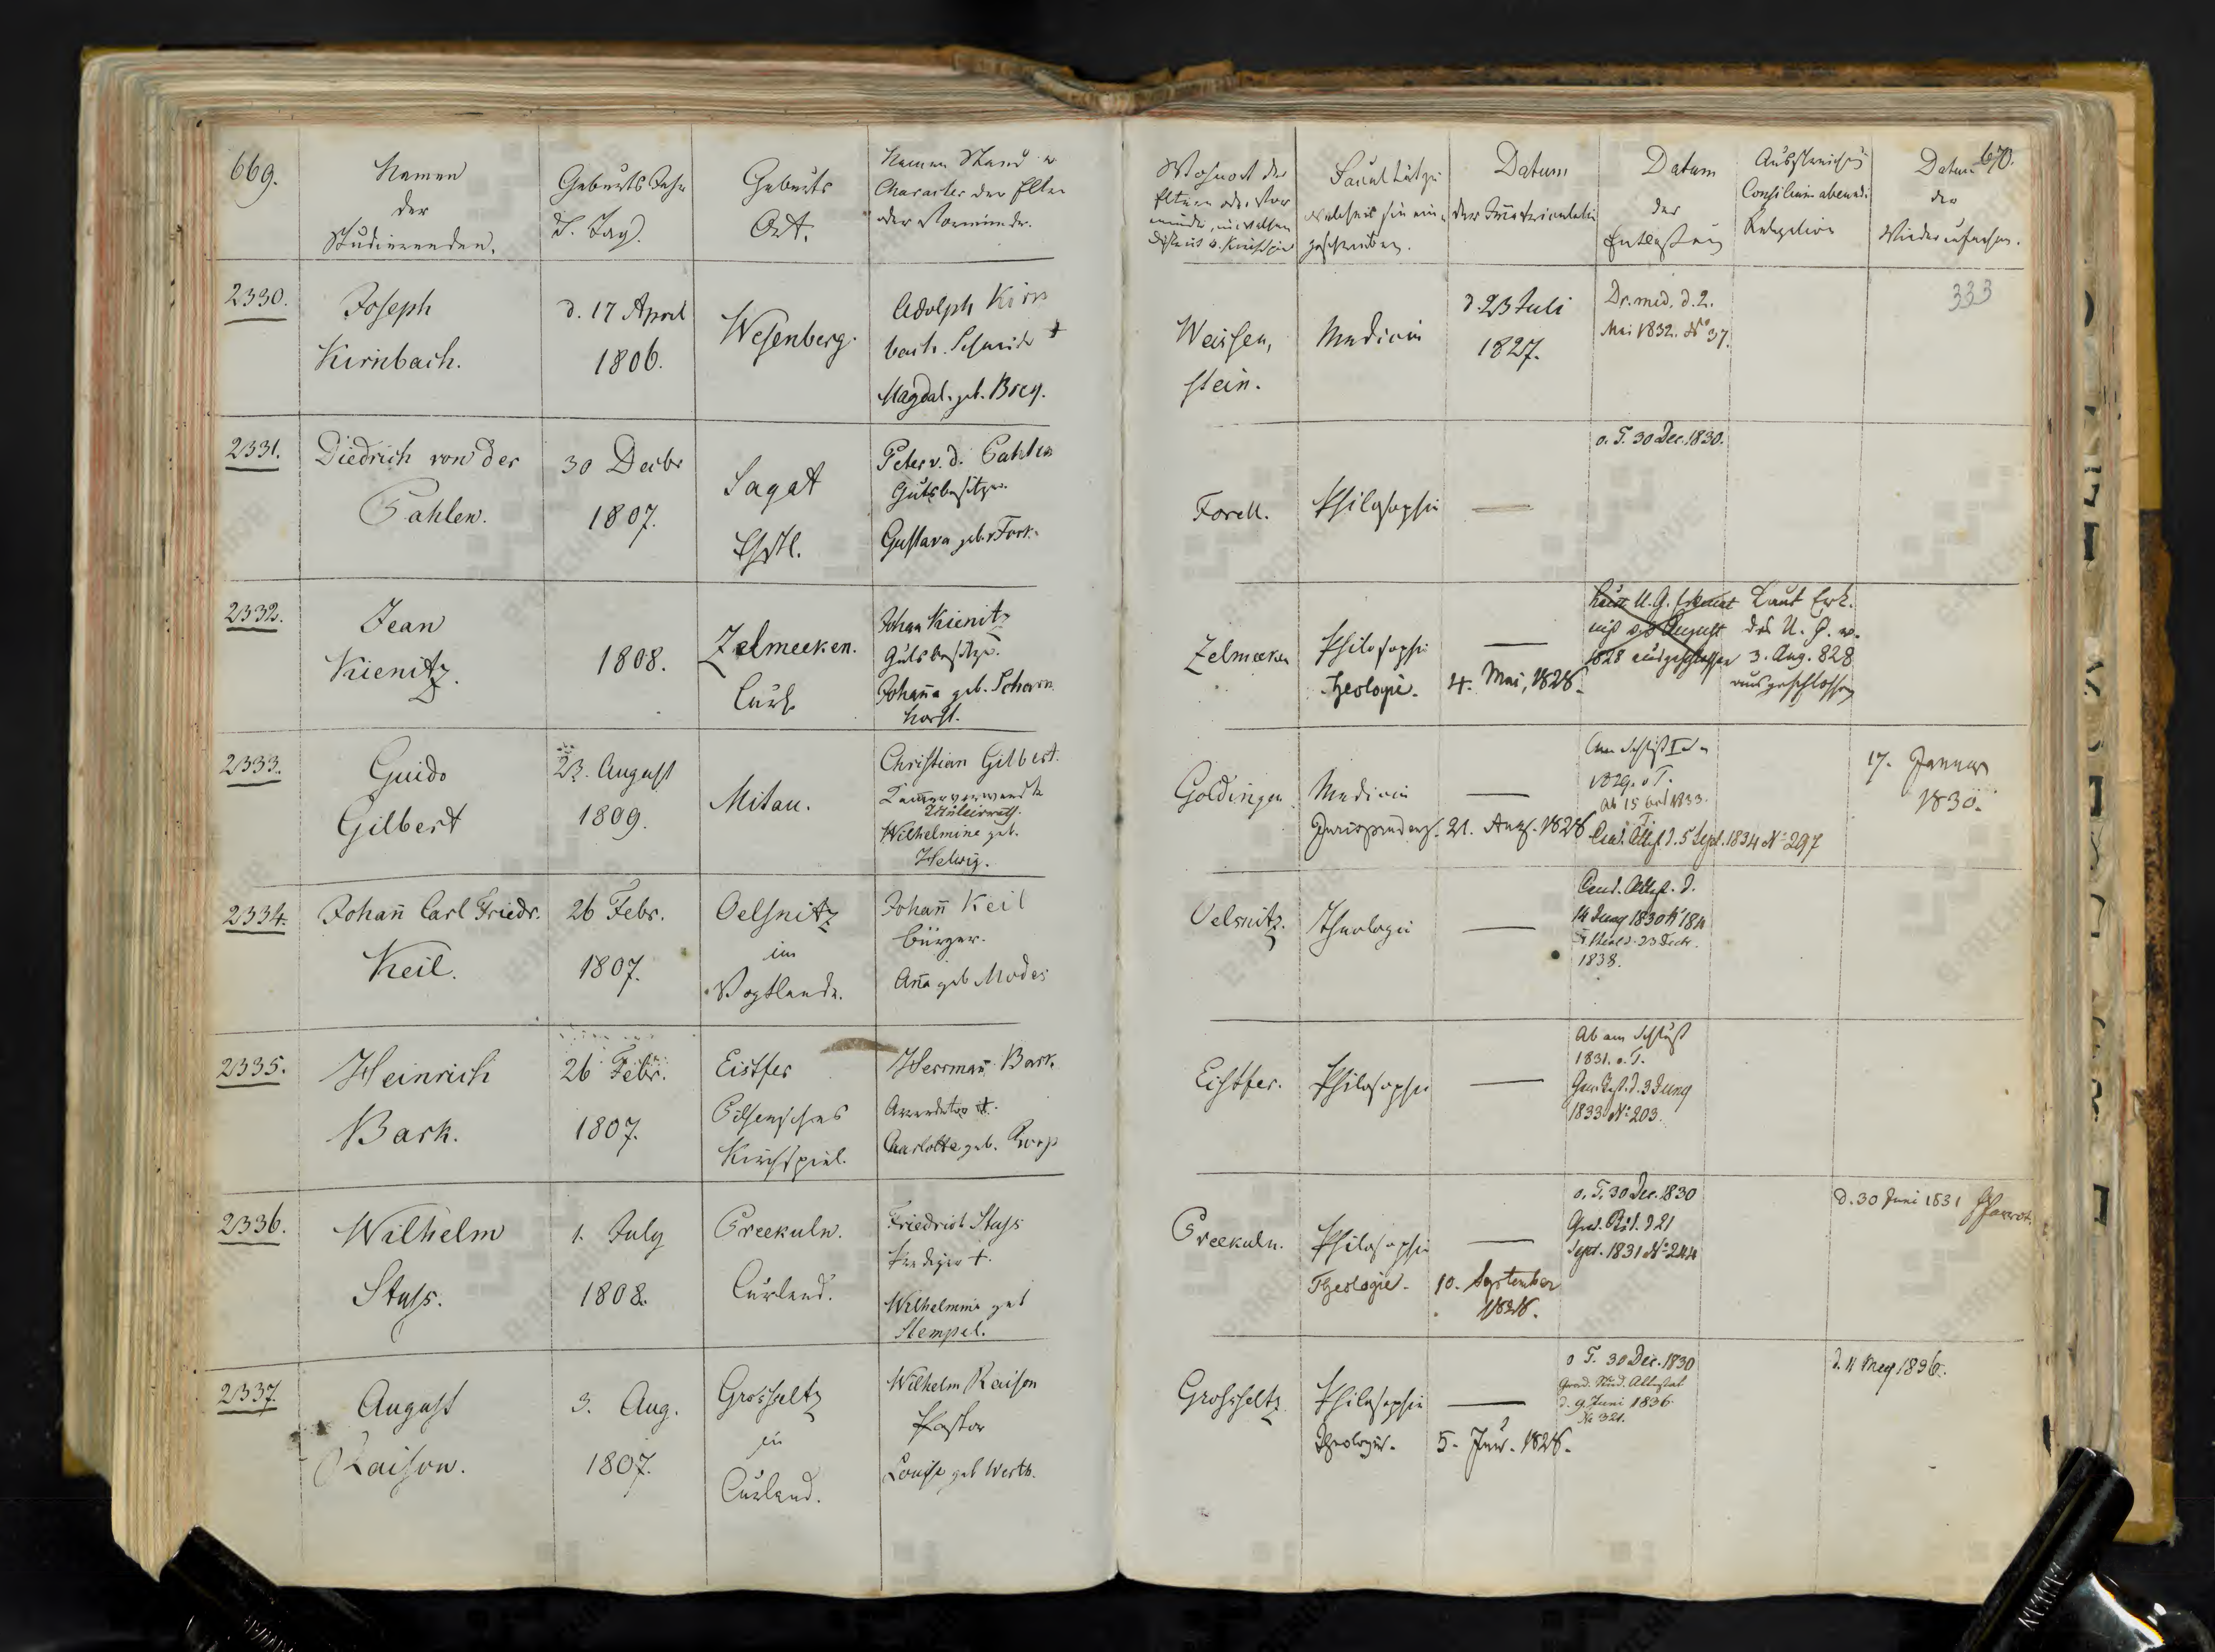 669.
Namen
der
Studierenden.
Geburts Jahr
u. Tag.
Geburts
Ort.
Namen Stand u
Character der Eltern
oder Vormünder.
Wohnort der
Eltern oder Vor
münder, in welchem
District u. Kirchspiel
Facultät zu
welcher sie ein
geschrieben.
Datum
der Immatriculation
Datum
der
Entlassung
Ausstreichung
Consilium abeundi
Relegation
Datum
der
Wiederaufnahme.
670.
333
2330.
Joseph
Kirnbach.
d. 17 April
1806.
Wesenberg.
Adolph Kirn
bach. Schmidt †
Magdal. geb. Brey.
Weissen,
stein.
Medicin
d 23 Juli
1827.
Dr. med. d. 2.
Mai 1832. No 37.
2331.
Diedrich von der
Pahlen.
30 Decbr
1807.
Sagat
Esthl.
Peter v. d. Pahlen
Gutsbesitzer.
Gustava geb.
Forell.
Philosophie
—
o. T. 30 Dec. 1830.
2332.
Jean
Kienitz.
1808.
Zelmeeken.
Curl.
Johan Kienitz
Gutsbesitzer.
Johana geb. Scharn
horst.
Zelmeeken
Philosophie
Theologie.
—
4. Mai, 1828.
Laut U. G. Erkennt
niß v. 3 August
1828 ausgeschlossen
Laut Erk.
des U. G. v.
3. Aug. 828
ausgeschlossen
2333.
Guido
Gilbert
23. August
1809.
Mitau.
Christian Gilbert.
Wilhelmine geb.
Helwig.
Goldingen.
Medicin
Jurisprudenz.
—
21. Aug. 1828
Am Schluß I Sem
1829. o T.
Ab 15 1833.
Grad. Attest d. 5 Sept. 1834 No 297
17. Januar
1830.
2334.
Johan Carl Friedr.
Keil.
26 Febr.
1807.
Oelsnitz
im
Vogtlande.
Johan Keil
Bürger.
Ana geb Modes
Oelsnitz.
Theologie
—
Cand. Attest. d.
14 Juny 1830 No 184
1838.
2335.
Heinrich
Bark.
26 Febr.
1807.
Eistfer
Pilsensches
Kirchspiel.
Herrman Bark.
Arrendator †.
Charlotte geb. Koop
Eistfer.
Philosophie
—
Ab am Schluß
1831. o. T.
d. 3 Juny
1833 No 203.
2336.
Wilhelm
Stass.
1. July
1808.
Preekuln.
Curland.
Friedrich Stass
Prediger †.
Wilhelmine geb
Stempel.
Preekuln.
Philosophie
Theologie.
—
10. September
1828.
o. T. 30 Dec. 1830
d 21
Sept. 1831 No 244
d. 30 Juni 1831
2337.
August
Raison.
3. Aug.
1807.
Grosseltz
in
Curland.
Wilhelm Raison
Pastor
Louise geb Werth.
Grosseltz
Philosophie
Theologie.
—
5. Jun. 1828.
o T. 30 Dec. 1830
Grad. Stud. Attestat
d. 9 Juni 1836.
No 321.
d. 11 May 1836.